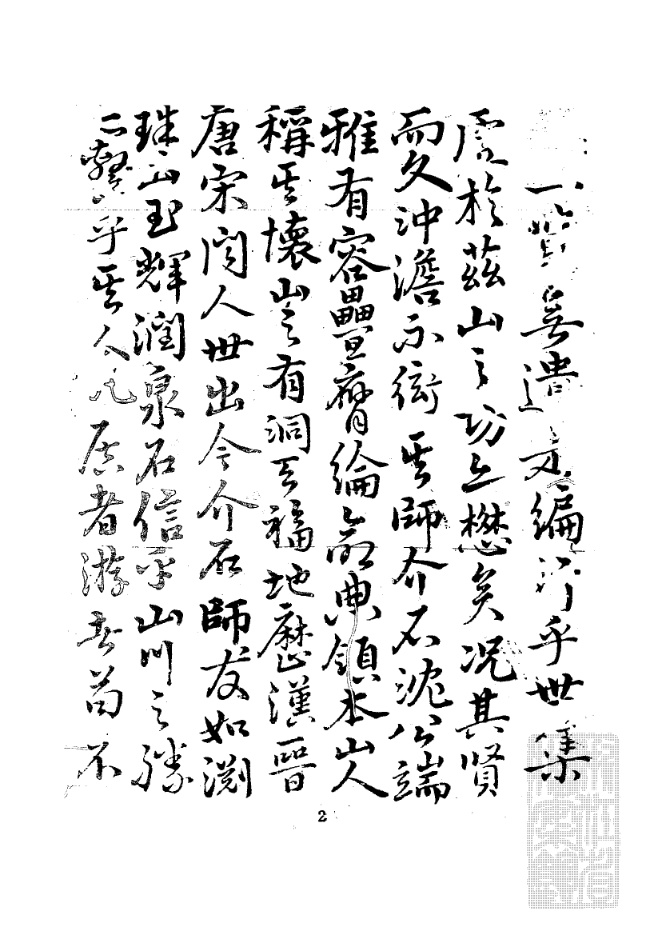 一覽無遺文編行乎世集
虛於茲山之功亦懋矣況其賢
而久沖澹不衒其師介石沈公端
雅有容疊膺綸命典領本山人
稱其懷山之有洞天福地歷漢晉
唐宋間人世出今介石師友如淵
珠山玉輝潤泉石信乎山川之勝
亦繫乎其人凡居者游者苟不
2